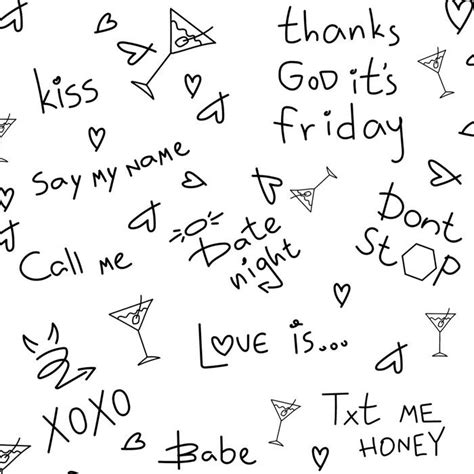 thanks
God it's
friday
kiss
Say my name
Dont
Stop
Date
night
Call me
Love is...
XOXO
Txt me
honey
Babe